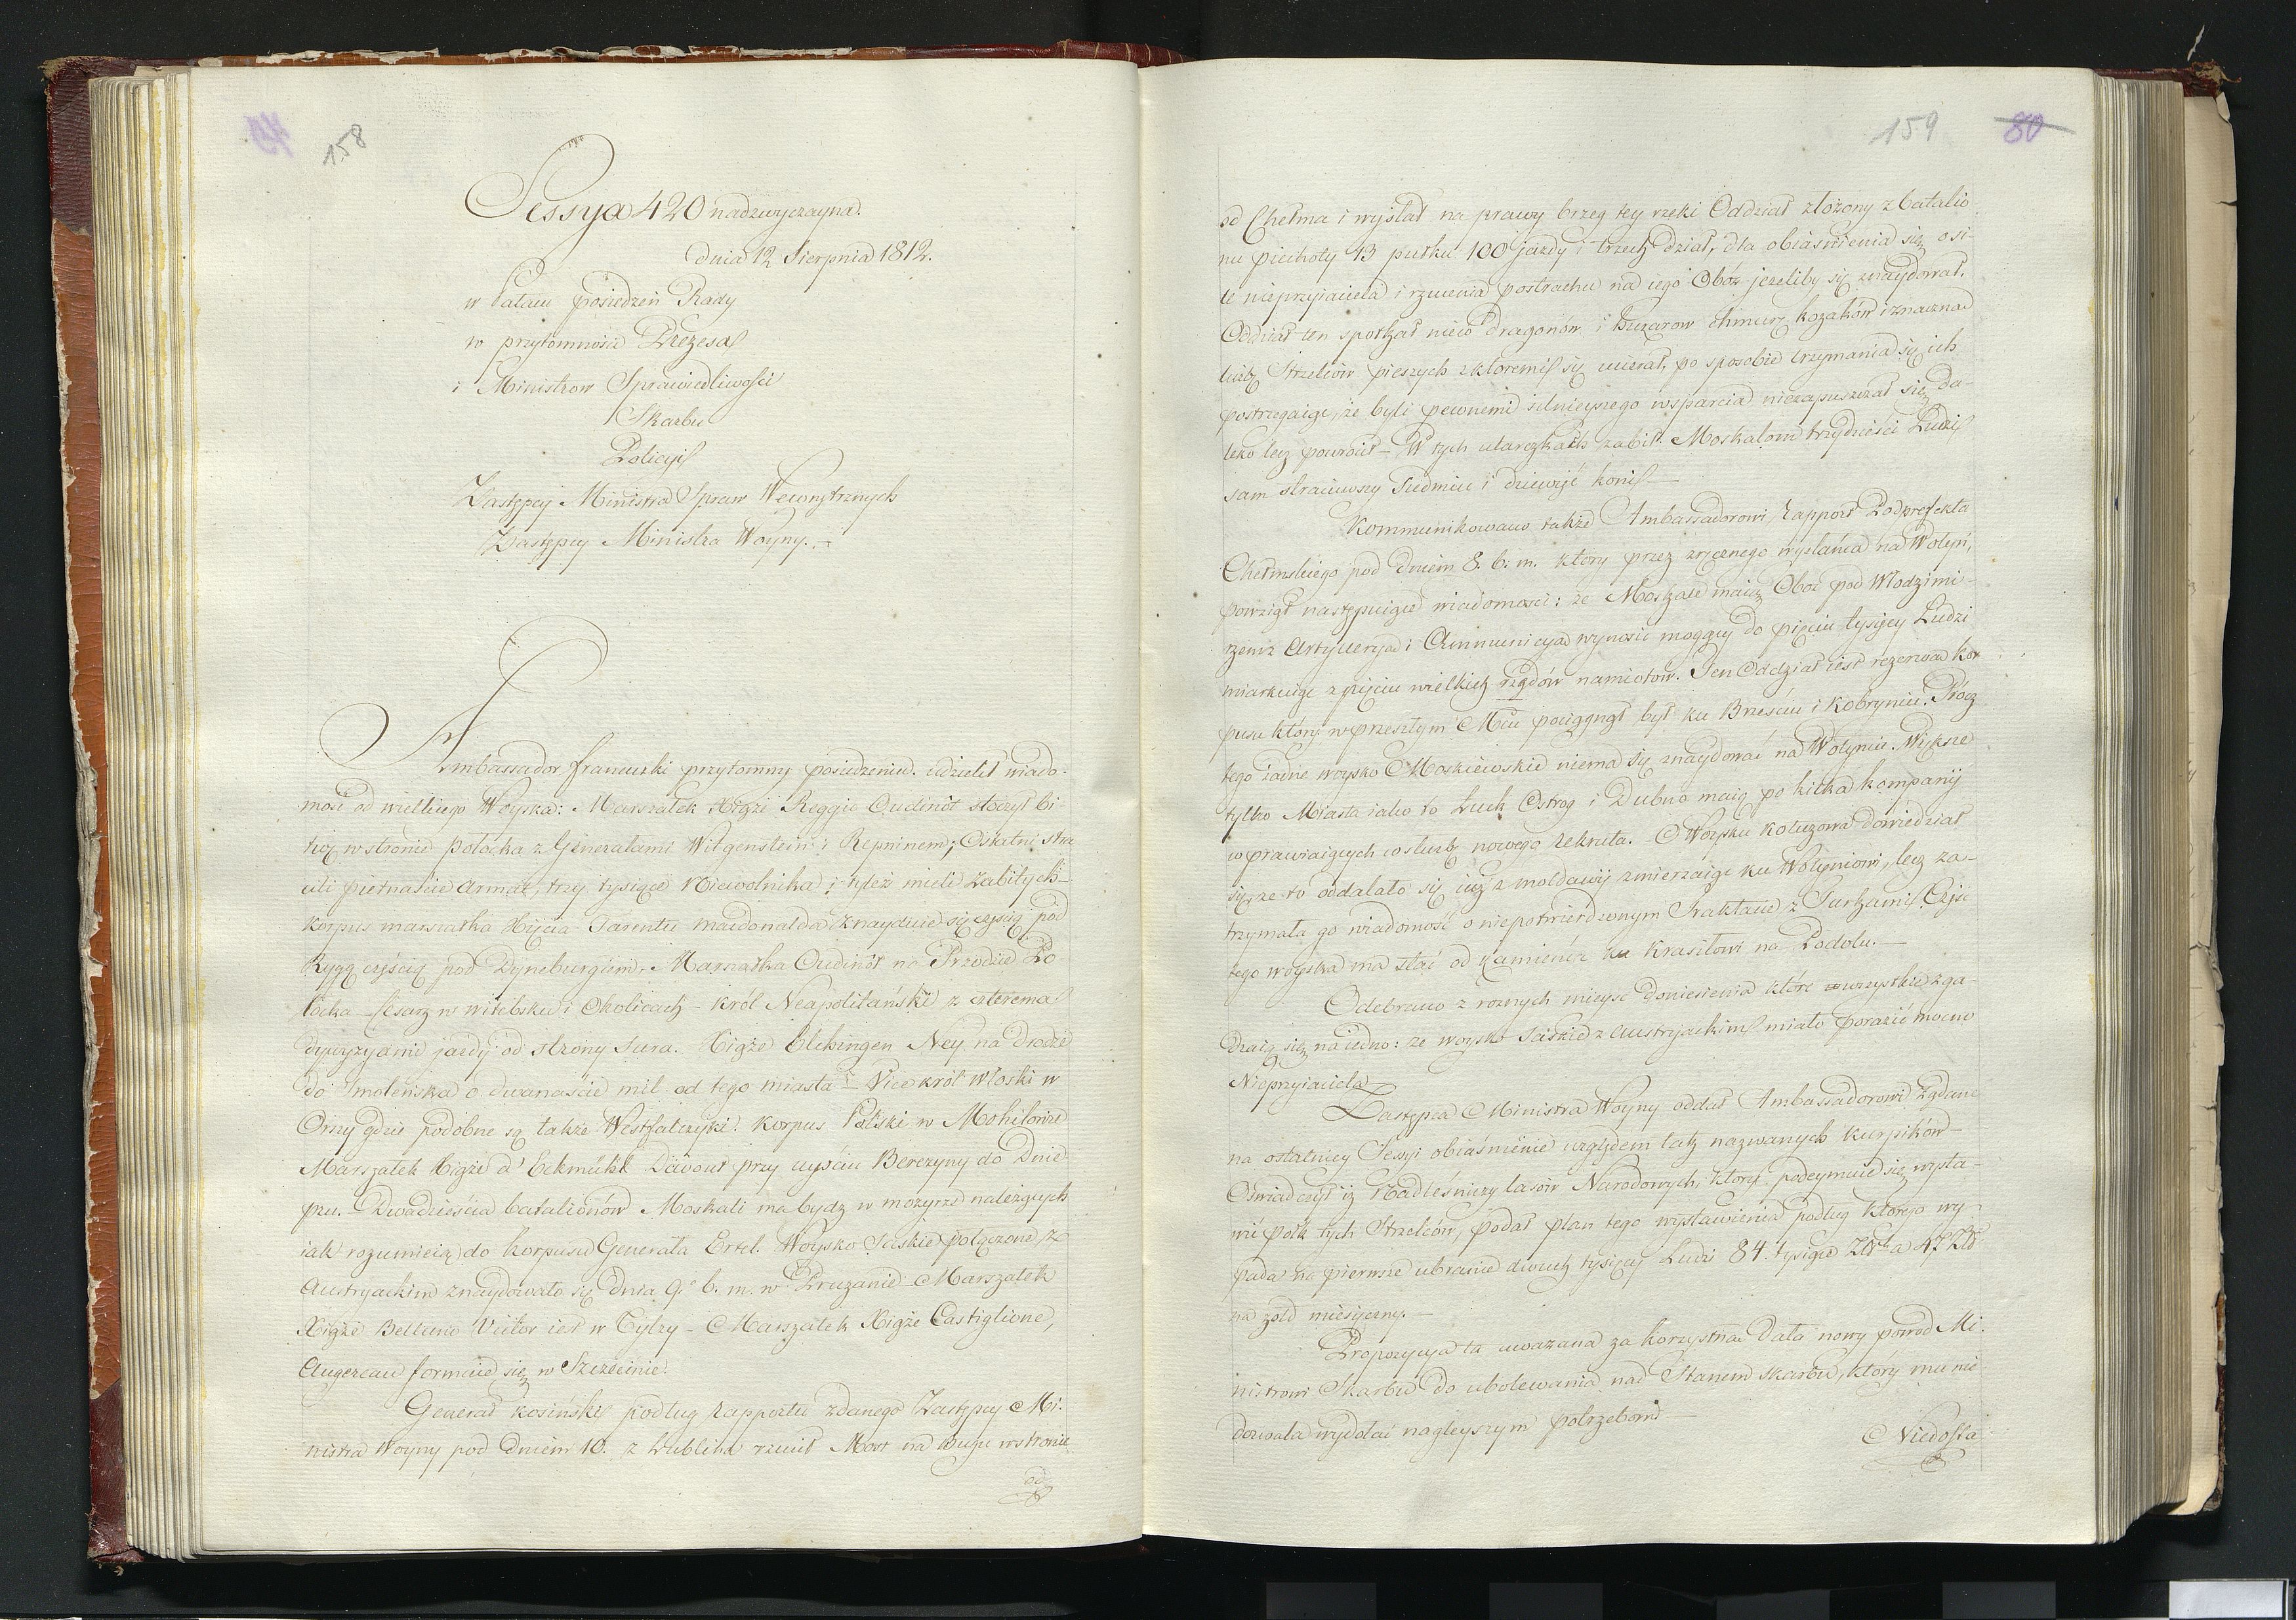 158
Sessya 420 nadzwyczayna.
dnia 12 Sierpnia 1812.
w Pałacu posiedzeń Rady
w przytomności Prezesa
i Ministrow Sprawiedliwości
Skarbu
Policyi
Zastępcy Ministra Spraw Wewnętrznych
Zastępcy Ministra Woyny. –
Ambassador francuzki przytomny posiedzeniu. udzielił wiado-
mość od wielkiego Woyska: Marszałek Xiąże Reggio Oudinôt stoczył bi-
twę w stronie połocka z Generałami Witgenstein i Repninem; Ostatni stra
cili piętnaście armat, trzy tysiące Niewolnika i tyleż mieli zabitych –
Korpus marszałka Xięcia Tarentu macdonalda znayduie się częścią pod
Rygą częścią pod Dyneburgiem. Marszałka Oudinôt na Przodzie Po-
łocka – Cesarz w witebsku i Okolicach – Król Neapolitański z czterema
dywizyami jazdy od strony Sura. Xiąże Elchingen Ney na drodze
do Smoleńska o dwanaście mil od tego miasta – Vice król włoski w
Orszy gdzie podobne są także Westfalczyki. Korpus Polski w Mohilowie
Marszałek Xiąże d'Eckmühl Davout przy uyściu Berezyny do Dnie-
pru. – Dwadzieścia batalionów Moskali ma bydz w mozyrze należących
iak rozumieią do korpusu Generała Ertel. Woysko Saskie połączone z
Austryackim znaydowało się dnia 9° b. m. w Pruzanie Marszałek
Xiąże Bellune Victor iest w Tylży – Marszałek Xiąże Castiglione,
Augereau formuie się w Szczecinie.
Generał Kosiński podług rapportu zdanego Zastępcy Mi-
nistra Woyny pod dniem 10. z Lublina rzucił Most na bugu w stronie
od
159 80
od Chełma i wysłał na prawy brzeg tey rzeki Oddział złożony z batalio-
nu piechoty 13 pułku 100 jazdy i trzech dział, dla obiaśnienia się o si-
le nieprzyiaciela i rzucenia postrachu na iego Obóz jeżeliby się znaydował.
Oddział ten spotkał nieco dragonów i huzarow chmurę kozaków i znaczną
liczbę Strzelców pieszych z któremi się ucierał, po sposobie trzymania się ich
postrzegaiąc, że byli pewnemi silnieyszego wsparcia niezapuszczał się da-
leko lecz powrócił – W tych utarczkach zabił Moskalom trzydzieści Ludzi
sam straciwszy siedmiu i dziewięć koni –
Kommunikowano także Ambassadorowi, Rapport Podprefekta
Chełmskiego pod dniem 8. b. m. ktory przez zręcznego wysłańca na Wołyń,
powziął następuiące wiadomości: że Moskale maią Obóz pod Włodzimi-
rzem z Artyleryą i Ammunicyą wynosić mogący do pięciu tysięcy Ludzi
miarkuiąc z pięciu wielkich rzędów namiotów. Ten Oddział iest rezerwą kor-
pusu który w przeszłym Mcu pociągnął był ku Brześciu i Kobryniu. Prócz
tego żadne woysko Moskiewskie niema się znaydować na Wołyniu. Większe
tylko Miasta iako to Łuck Ostrog i Dubno maią po kilka kompanij
wprawiaiących w służbę nowego rekruta. – O Woysku Kotuzowa dowiedział
się, że to oddalało się iuż z mołdawij zmierzaiąc ku Wołyniowi, lecz za-
trzymała go wiadomość o niepotwierdzonym Traktacie z Turkami. Część
tego woyska ma stać od Kamieńca ku Krasiłowi na Podolu. –
Odebrano z roznych mieysc doniesienia które wszystkie zga-
dzaią się na iedno: że woysko Saskie z Austryackim miało porazić mocno
Nieprzyiaciela
Zastępca Ministra Woyny oddał Ambassadorowi żądane
na ostatniey Sessyi obiaśnienie względem tak nazwanych kurpików –
Oświadczył iż Nadleśniczy lasów Narodowych, który podeymuie się wysta-
wić połk tych Strzelców, podał plan tego wystawienia podług którego wy-
pada na pierwsze ubranie dwuch tysięcy Ludzi 84. tysiące Złłch a 47 Złł
na żołd miesięczny. –
Propozycya ta uważana za korzystna dała nowy powod Mi-
nistrowi Skarbu do ubolewania nad Stanem skarbu, który mu nie
dozwala wydołać nagleyszym potrzebom –
Niedosta